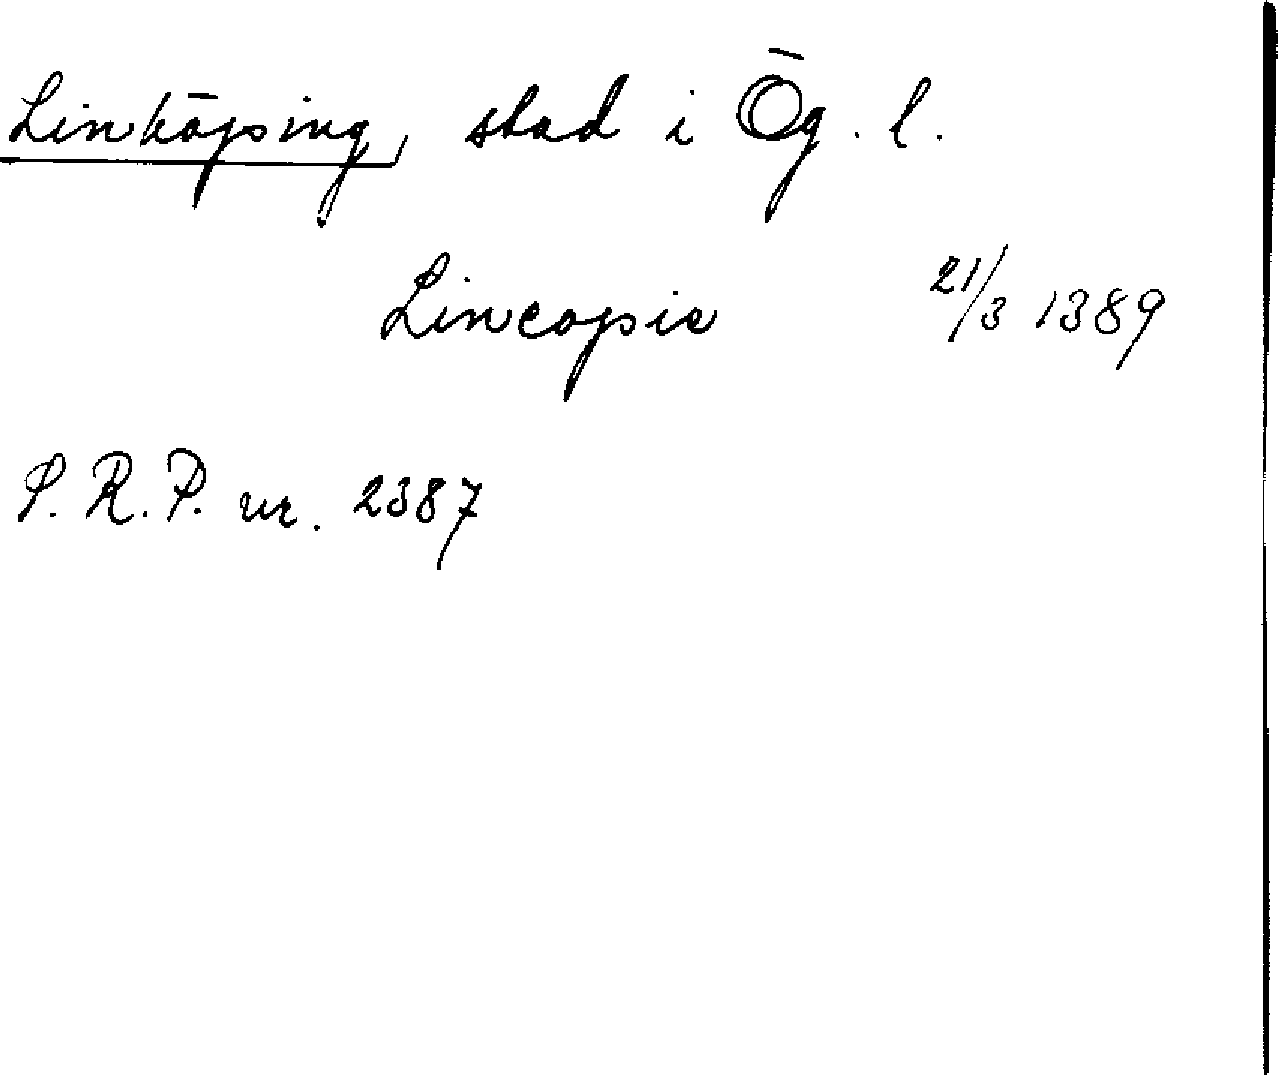 Linköping, stad i Ög. l.
Lincopie 21/3 1389
S. R. P. nr. 2387